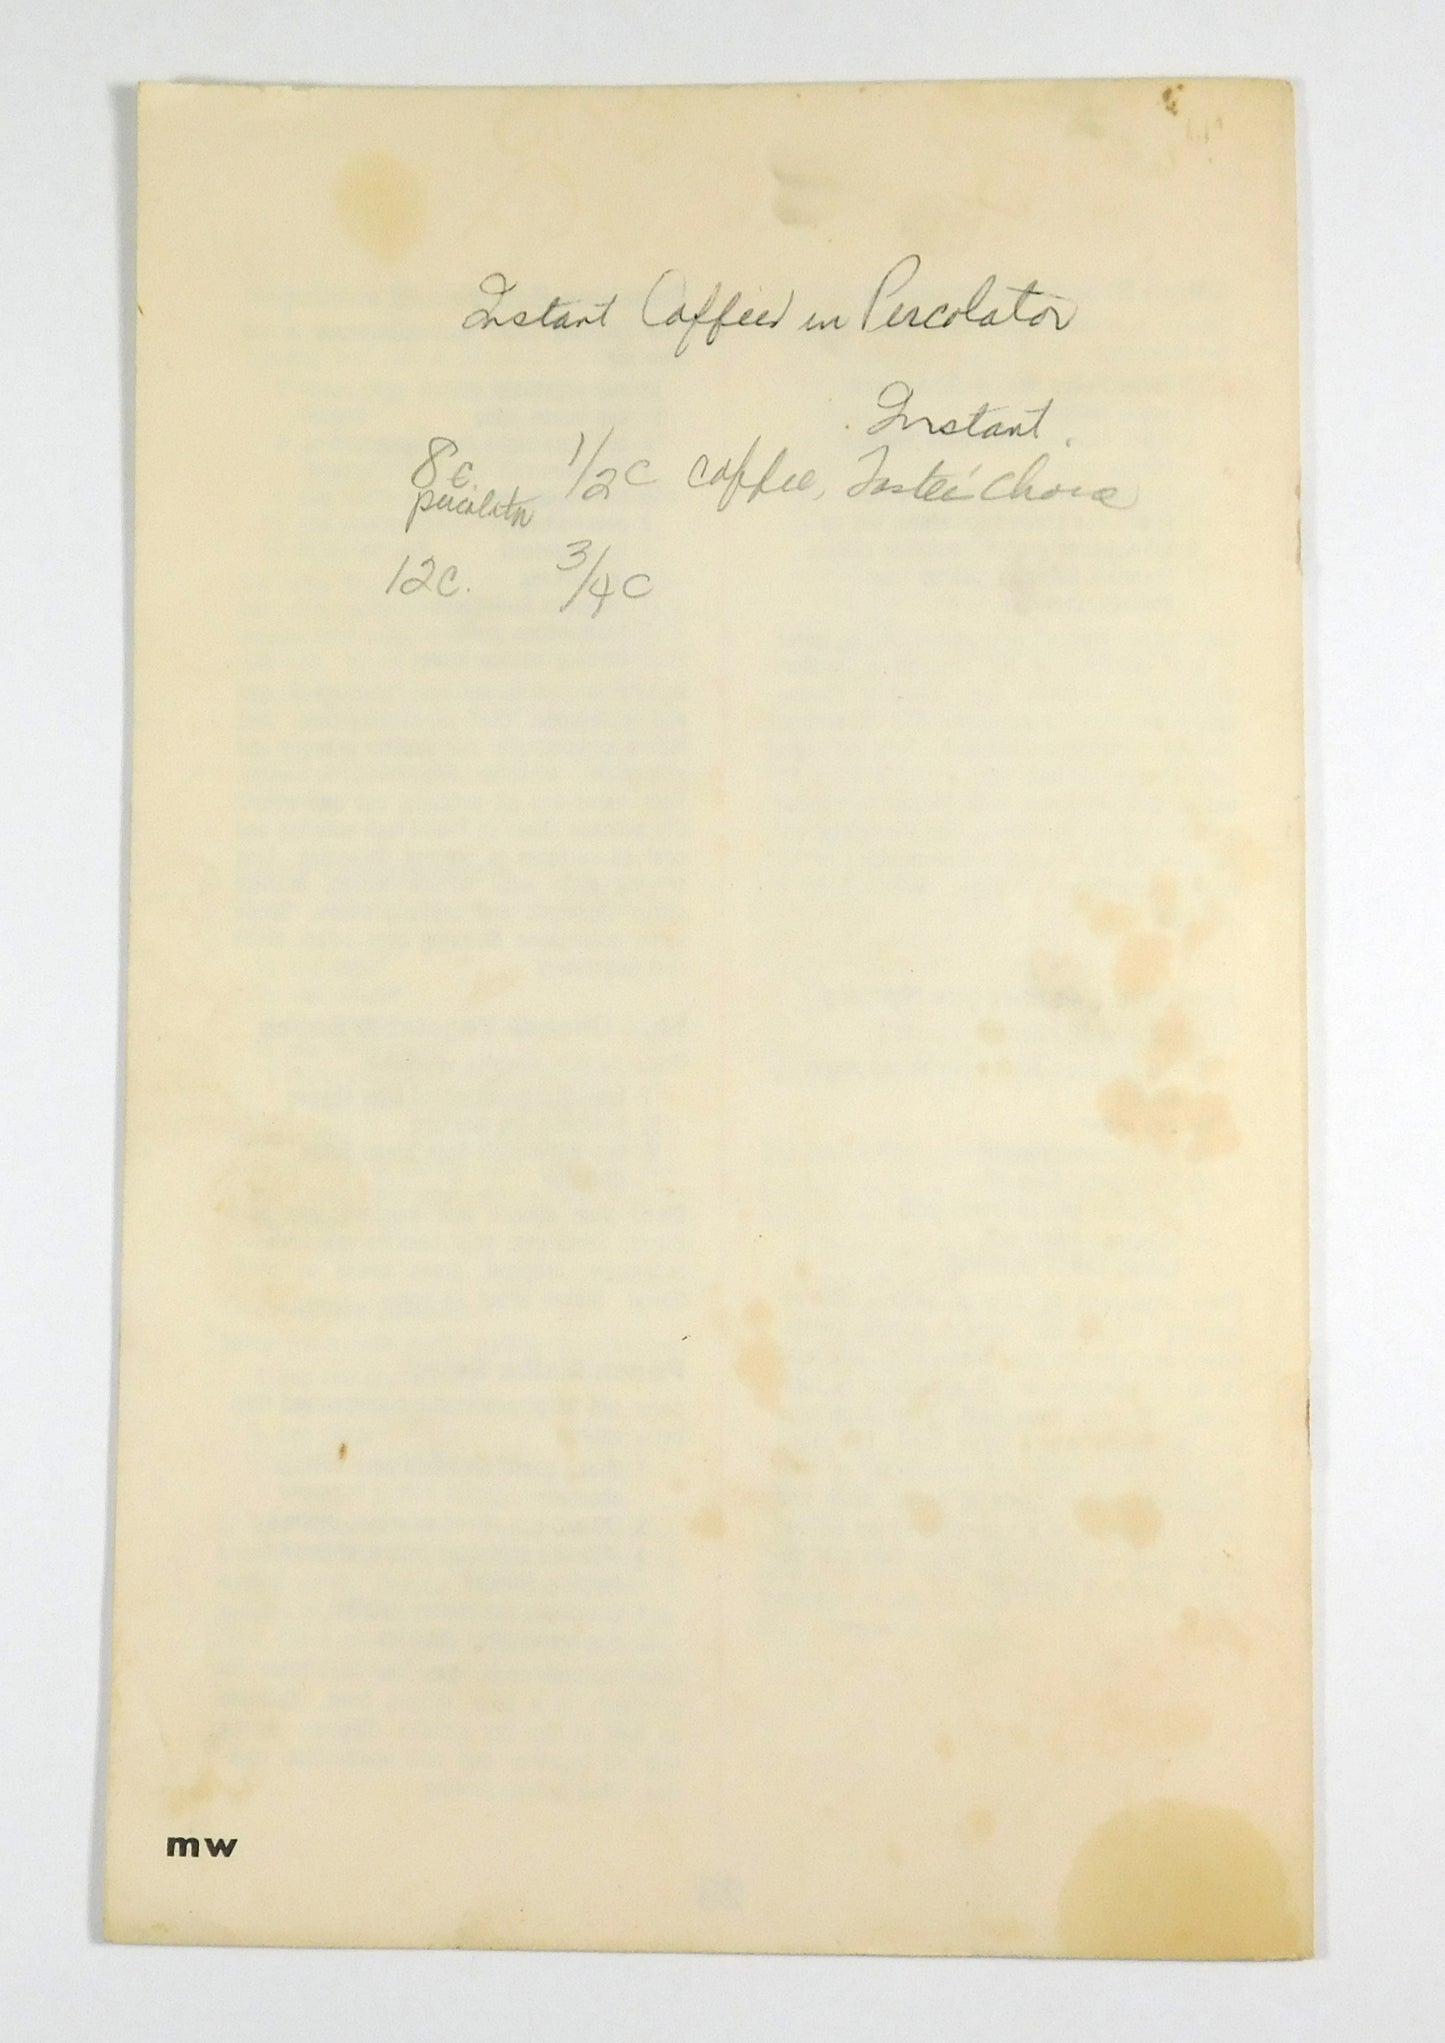 Instant Coffee in Percolator
Instant
8c. 1/2 c coffee, Taster's Choice
percolator
12c. 3/4 c
mw